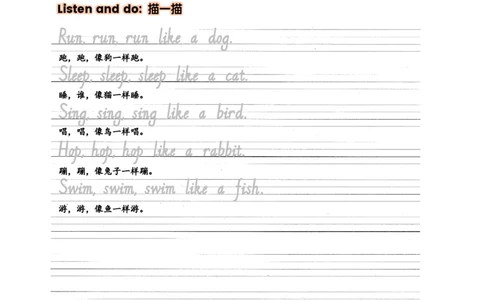 Listen and do: 描一描
Run, run, run like a dog.
跑，跑，像狗一样跑。
Sleep, sleep, sleep like a cat.
睡，谁，像猫一样睡。
Sing, sing, sing like a bird.
唱，唱，像鸟一样唱。
Hop, hop, hop like a rabbit.
蹦，蹦，像兔子一样蹦。
Swim, swim, swim like a fish.
游，游，像鱼一样游。